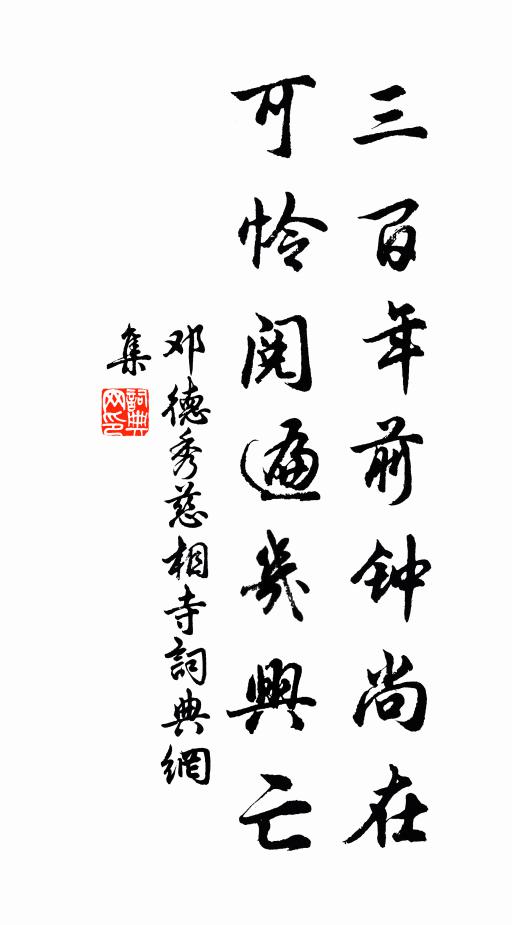 三百年前钟尚在
可怜阅遍几兴亡
邓德秀慈相寺詞典網
集
詞典
网印